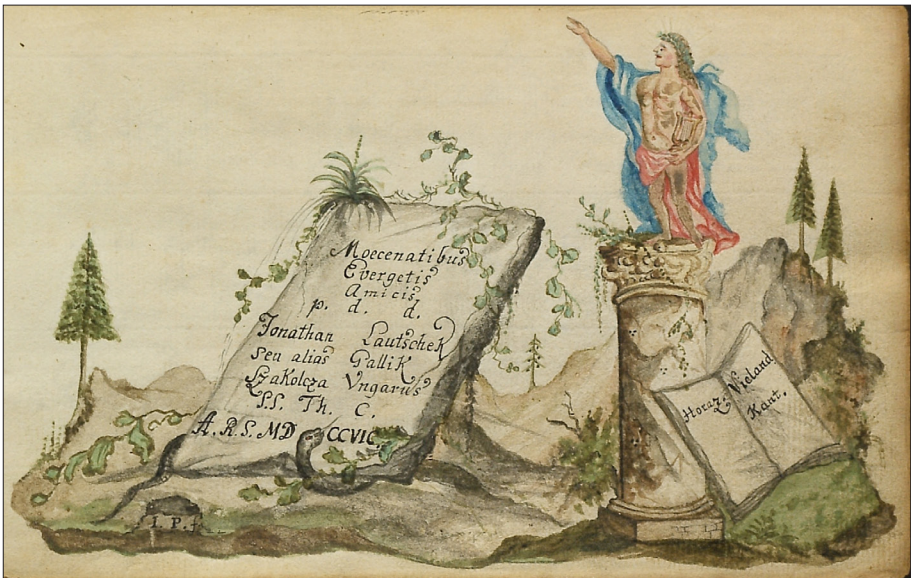 Moecenatibus
Evergetis
Amicis
p. d. d.
Jonathan Lautschek
seu alias Gallik
Szakolcza Vngarus
S.S. Th. C.
A. R. S. MD CCVIC.
I. P. f.
Horaz Wieland
Kant.